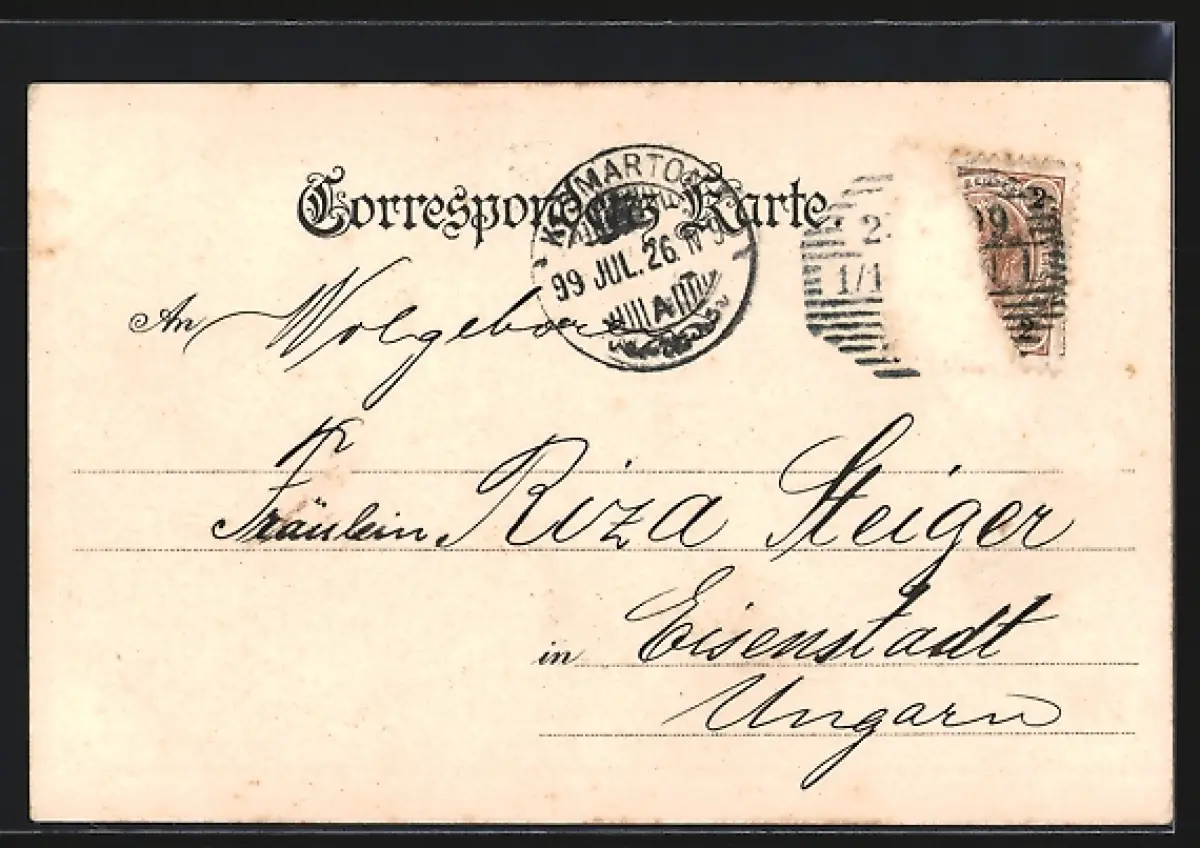 Correspondenz Karte.
MARTO
99 JUL. 26.
A
2
1/1
99
11
2
2
An Wolgeboren
Fräulein Riza Steiger
in Eisenstadt
Ungarn